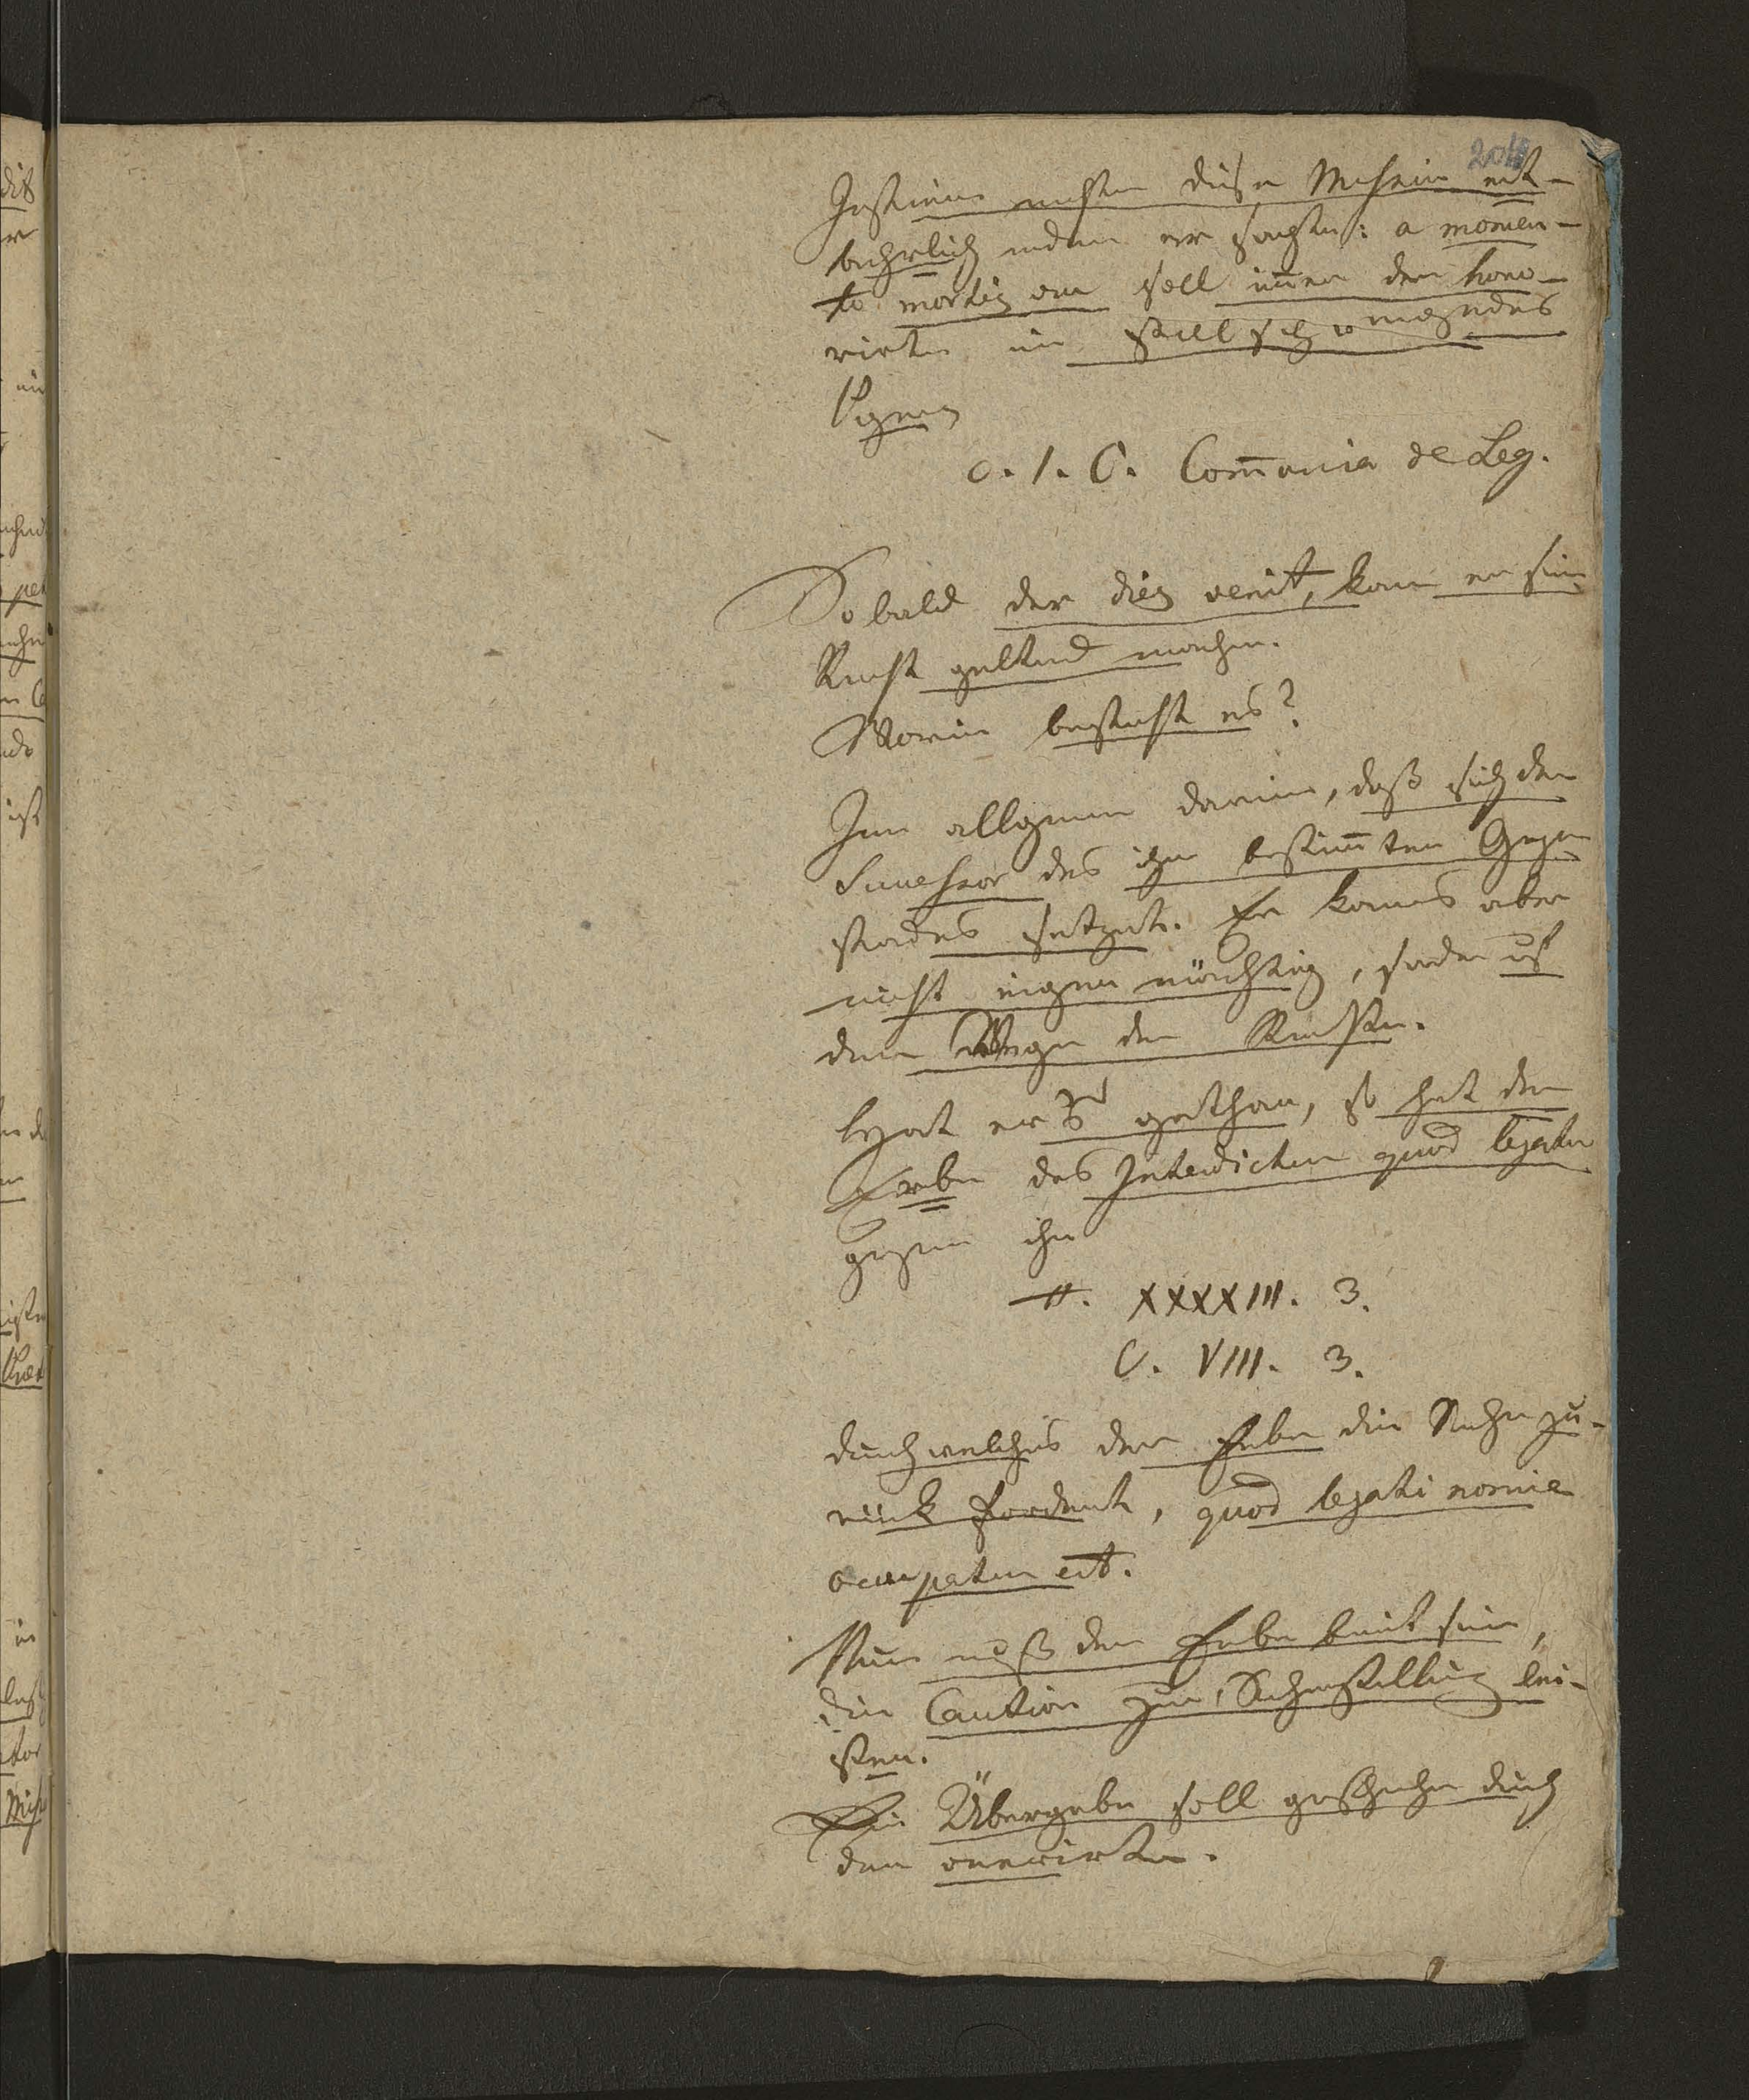 204
Justinian machte diese Mühsein ent-
behrlich indem er sagte: a momen-
to mortis an soll immer der hono-
rirte ein stillschweigendes
Pignus
c. 1. C. Com̄unia de Leg.
Sobald der dies venit, kann er sein
Recht geltend machen.
Worin besteht es?
Im allgemein darin, daß sich der
Successor des ihm bestim̄ten Gegen
standes setzet. Er kann es aber
nicht eigenmächtig, sondern auf
dem Wege der Rechte.
Hat er's gethan, so hat der
Erbe das Interdictum quod legator
gegen ihn
ff. XXXXIII. 3.
C. VIII. 3.
durch welches der Erbe die Sache zu-
rück fordert, quod legati nomine
occupatum est.
Nun muß der Erbe bereit sein,
die Caution zur Sicherstellung lei-
sten.
Die Übergabe soll geschehen durch
den onerirten.